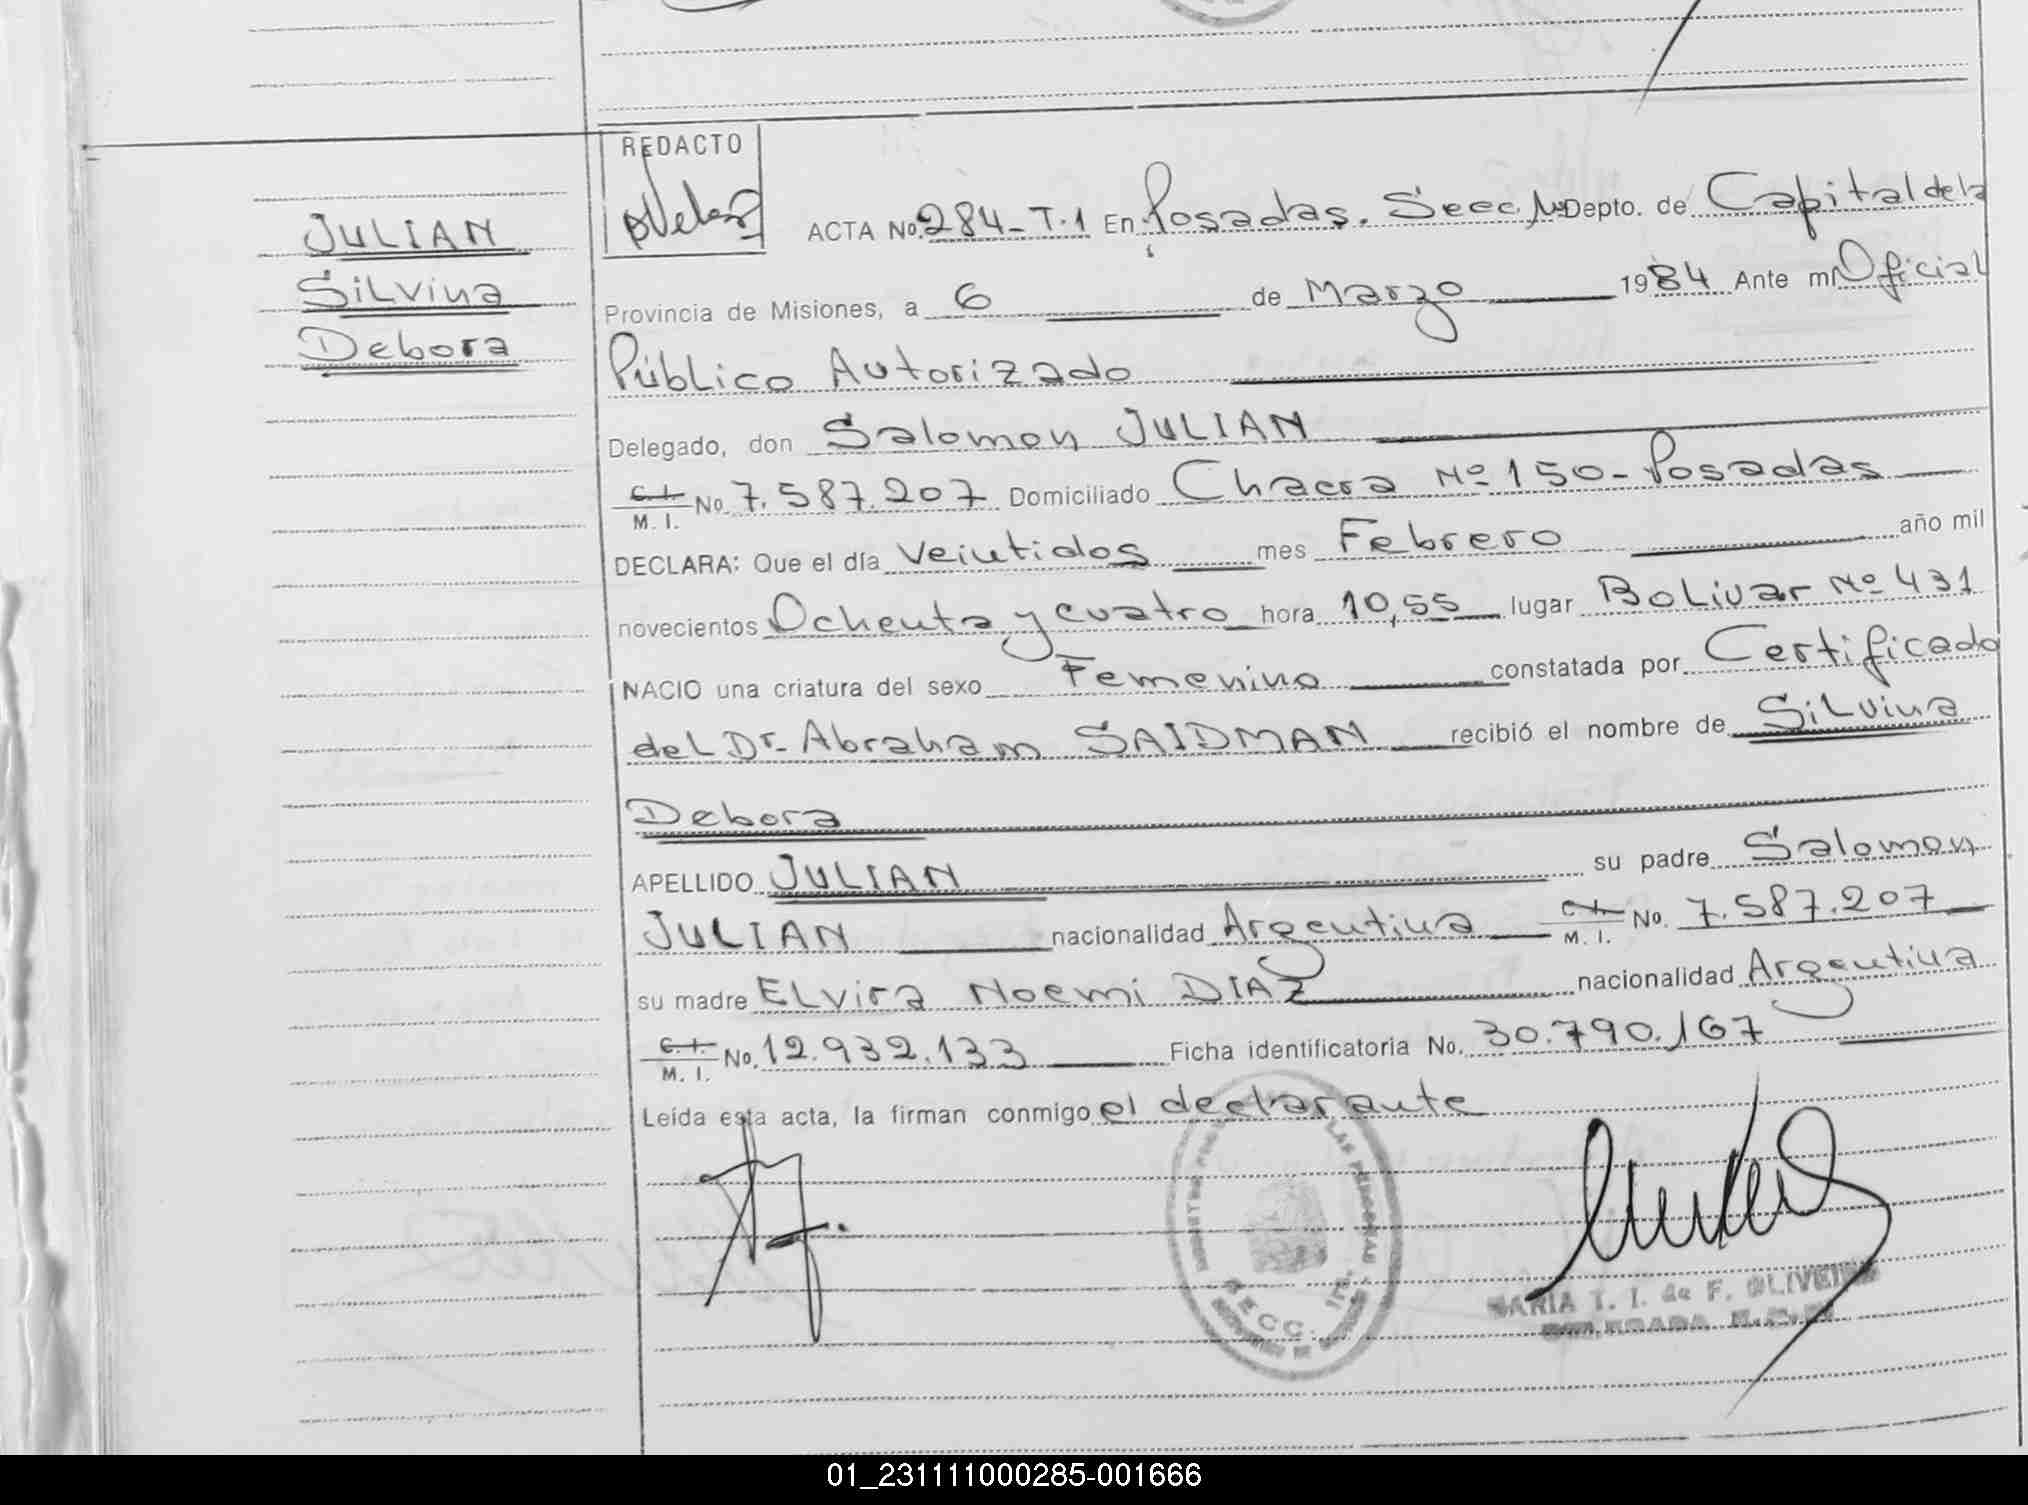 JULIAN
Silvina
Debora
REDACTO
ACTA No. 284-T.1 En Posadas. Secc. Depto. de Capital de la
Provincia de Misiones, a 6 de Marzo 1984 Ante mi Oficial
Público Autorizado
Delegado, don Salomon JULIAN
C.I. M. I. No. 7.587.207 Domiciliado Chacra Nº 150-Posadas
DECLARA: Que el día Veintidos mes Febrero año mil
novecientos Ochenta y cuatro hora 10,55 lugar Bolivar Nº 431
NACIO una criatura del sexo Femenino constatada por Certificado
del Dr. Abraham SAIDMAN recibió el nombre de Silvina
Debora
APELLIDO JULIAN su padre Salomon
JULIAN nacionalidad Argentina C.I. M. I. No. 7.587.207
su madre Elvira Noemi DIAZ nacionalidad Argentina
C.I. M. I. No. 12.932.133 Ficha identificatoria No. 30.790.167
Leída esta acta, la firman conmigo el declarante
MARIA T. I. de F. OLIVEIRA
DELEGADA
01_231111000285-001666